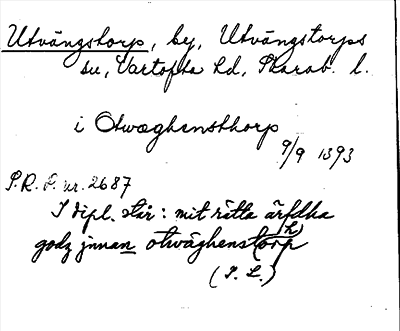 Utvängstorp, by, Utvängstorps
sn, Vartofta hd, Skarab. l.
i Otwæghensthorp
9/9 1393
P.R. P. nr. 2687
I dipl. står: mit rätta ärfdha
godz jnnan otwäghenst(h)orp
(I. L.)